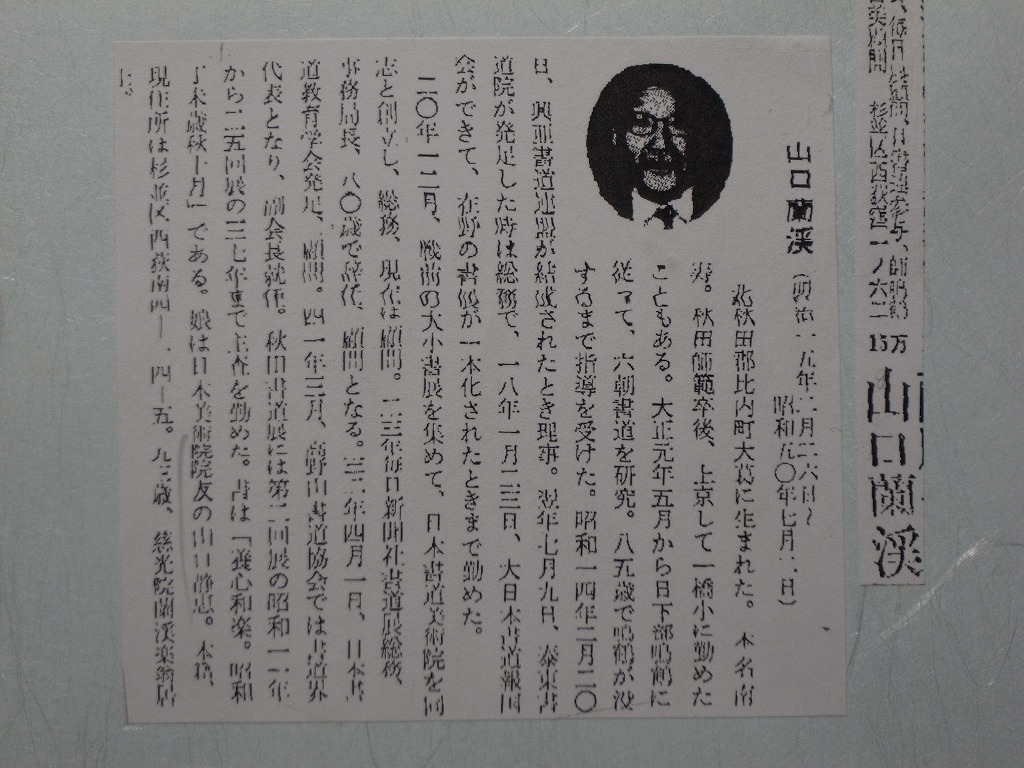 山口蘭渓
(明治一五年二月二六日~
昭和五〇年七月一日)
北秋田郡比内町大葛に生まれた。本名南
寿。秋田師範卒後、上京して一橋小に勤めた
こともある。大正元年五月から日下部鳴鶴に
従って、六朝書道を研究。八五歳で鳴鶴が没
するまで指導を受けた。昭和一四年二月二〇
日、興亜書道連盟が結成されたとき理事。翌年七月九日、泰東書
道院が発足した時は総務で、一八年一月二三日、大日本書道報国
会ができて、在野の書展が一本化されたときまで勤めた。
二〇年一二月、戦前の大小書展を集めて、日本書道美術院を同
志と創立し、総務、現在は顧問。二三年毎日新聞社書道展総務、
事務局長、八〇歳で辞任、顧問となる。三二年四月一日、日本書
道教育学会発足、顧問。四一年三月、高野山書道協会では書道界
代表となり、副会長就任。秋田書道展には第二回展の昭和一一年
から二五回展の三七年まで主査を勤めた。書は「養心和楽。昭和
丁未歳秋十月」である。娘は日本美術院院友の山口静思。本籍、
現住所は杉並区西荻南四―
四―五。
歳、慈光院蘭渓楽翁居
士。
杉並区西荻窪一ノ六二
15万
山口蘭渓